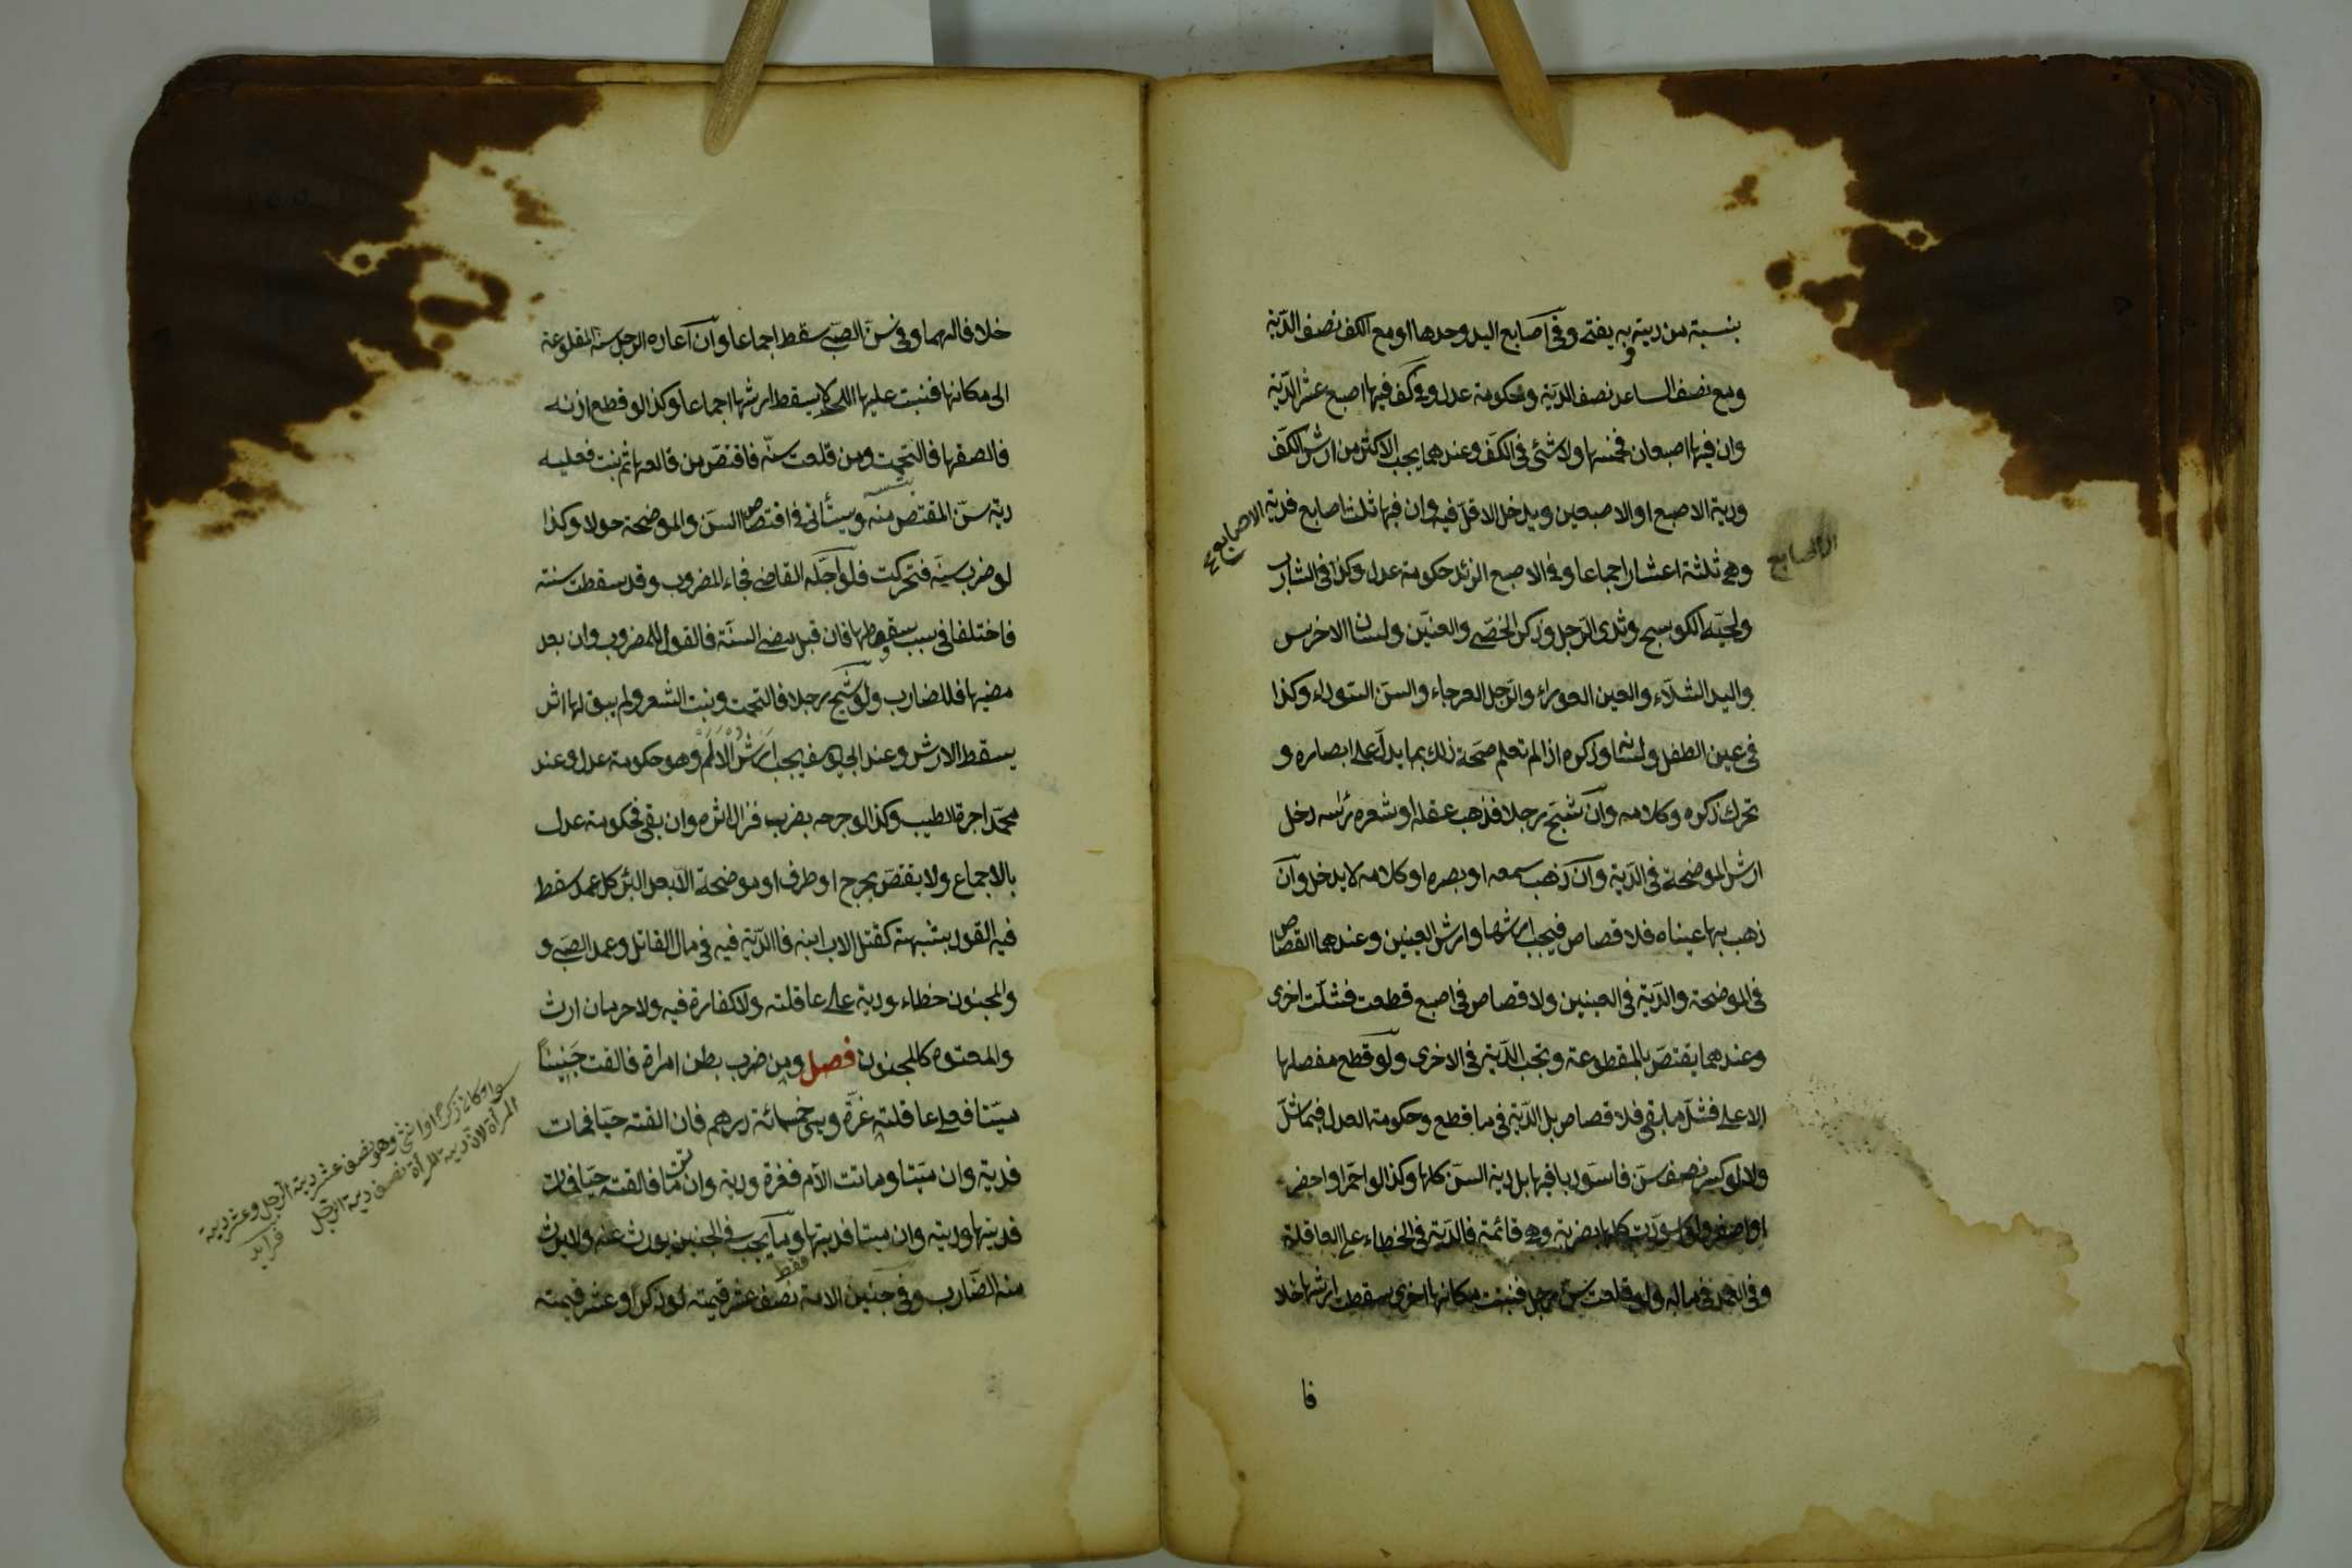 بنسبته من ديته به يفتى وفى اصابع اليد وحدها او مع الكف نصف الدّية
ومع نصف الساعد نصف الدّية وحكومة عدل وفى كف فيها اصبع عشر الدّية
وان فيها اصبعان فخمسها ولا شئ فى الكفّ وعندهما يجب الاكثر من ارش الكفّ
ودية الاصبع او الاصبعين ويدخل الاقلّ فيه وان فيها ثلث اصابع فدية الاصابع
وهى ثلثة اعشار اجماعا وفى الاصبع الزائد حكومة عدل وكذا فى الشارب
ولحية الكوسج وثدى الرّجل وذكر الخصّى والعنّين ولسان الاخرس
واليد الشلّاء والعين العوراء والرّجل العرجاء والسنّ السّوداء وكذا
فى عين الطفل ولسانه وذكره اذا لم تعلم صحّة ذلك بما يدلّ على ابصاره و
تحرك ذكره وكلامه وان شجّ رجلا فذهب عقله او شعره راسه دخل
ارش الموضحة فى الدّية وان ذهب سمعه او بصره او كلامه لا يدخل وان
ذهب بها عيناه فلا قصاص فيجب ارشها وارش العينين وعندهما القصاص
فى الموضحة والدّية فى العينين ولا قصاص فى اصبع قطعت فشلّت اخرى
وعندهما يقتصّ بالمقطوعة وتجب الدّية فى الاخرى ولو قطع مفصلها
الاعلى فشلّ ما بقى فلا قصاص بل الدّية فى ما قطع وحكومة العدل فيما شلّ
ولا لو كسر نصف سنّ فاسود باقيها بل دية السنّ كلها وكذا لو احمرّ او اخضر
او اصفر ولو اسودّت كلها بضربة وهى قائمة فالدّية فى الخطاء على العاقلة
وفى العمد فى ماله ولو قلعت سنّ رجل فنبتت مكانها اخرى يسقط ارشها خلا
فا
الاصابع
خلافا لهما وفى سنّ الصبّى سقط اجماعا وان اعاده الرجل سنه المقلوعة
الى مكانها فنبت عليها اللحم لا يسقط ارشها اجماعا وكذا لو قطع اذنه
فالصقها فالتحمت ومن قلعت سنّه فاقتصّ من قالعها ثم نبت فعليه
دية سنّ المقتص منه ويستأنى فى اقتصاص السنّ والموضحة حولا وكذا
لو ضرب سنّه فتحركت فلو اجّله القاضى فجاء المضروب وقد سقطت سنته
فاختلفا فى سبب سقوطها فان قبل مضى السنّة فالقول للمضروب وان بعد
مضيها فللضارب ولو شجّ رجلا فالتحمت ونبت الشعر ولم يبق لها اثر
يسقط الارش وعند ابى يوسف يجب ارش الالم وهو حكومة عدل وعند
محمّد اجرة الطبيب وكذا لو جرحه بضرب فزال اثره وان بقى فحكومة عدل
بالاجماع ولا يقتصّ بجرح او طرف او موضحة الّا بعد البرء كل عمد سقط
فيه القود بشبهة كقتل الاب ابنه فا الدّية فيه فى مال القاتل وعمد الصّبى و
والمجنون خطاء وديته على عاقلته ولا كفارة فيه ولا حرمان ارث
والمعتوه كالمجنون فصل ومن ضرب بطن امراة فالقت جَنِيناً
ميّتا فعلى عاقلته غرّة وهى خمسمائة درهم فان القته حيّا فمات
فدية وان ميّتا وماتت الام فغرة ودية وان ماتت فالقته حيّا فمات
فديتها وديته وان ميتا فديتها وما يجب فى الجنين يورث عنه ولا يرث
فقط
منه الضّارب وفى جنين الامة نصف عشر قيمته لو ذكرا وعشر قيمته
سواء كان ذكرا او انثى وهو نصف عشر دية الرجل وعشر دية
المرأة لان دية المرأة نصف دية الرجل
فرايد